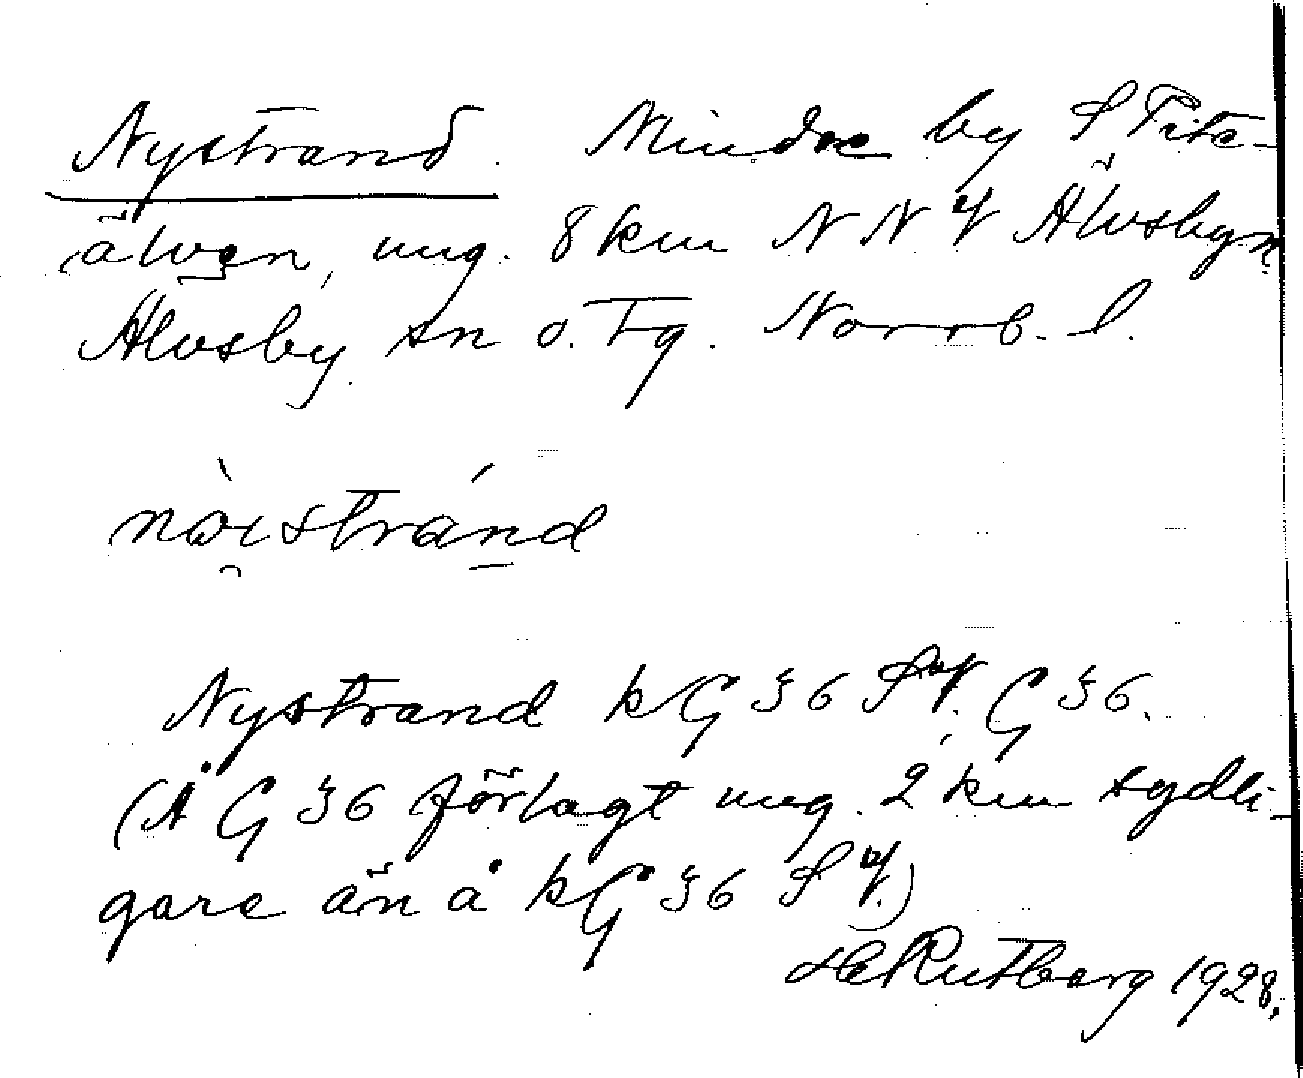 Nystrand. Mindre by S Pite-
älven, ung. 8 km NNV Älvsbyn
Älvsby sn o. Tg. Norrb. l.
Nystrand kG 36 SV. G 36.
(Å G 36 förlagt ung. 2 km sydli-
gare än å kG 36 SV.)
H Rutberg 1928.